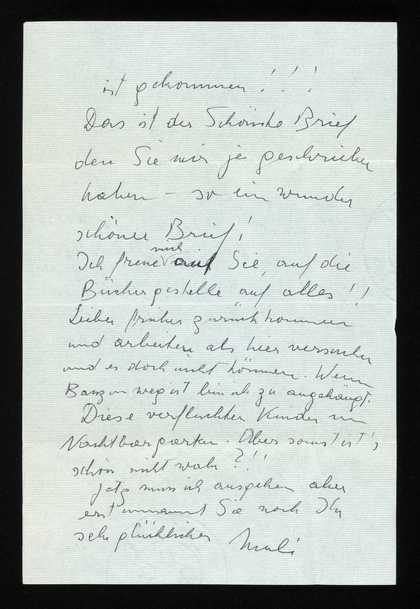 ist gekommen!!!
Das ist der Schönste Brief
den Sie mir je geschrieben
haben – so ein wunder
schöner Brief!
Ich freue mich auf Sie, auf die
Büchergestelle auf alles!!
Lieber früher zurückkommen
und arbeiten als hier versuchen
und es doch nicht können. Wenn
weg ist bin ich zu angehängt.
Diese verfluchten Kinder im
Nachtbarparken. Aber sonst ist's
schön nicht wahr?!!
Jetz muss ich ausgehen aber
erst umarmt Sie noch Ihr
sehr glücklicher